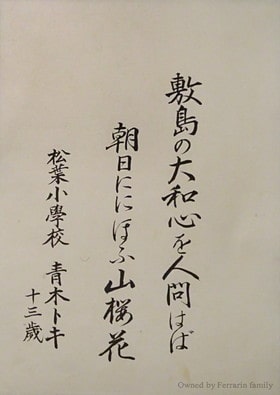 敷島の大和心を人問はば
朝日ににほふ山桜花
松葉小學校 青木トキ
十三歳
Owned by Ferrarin family